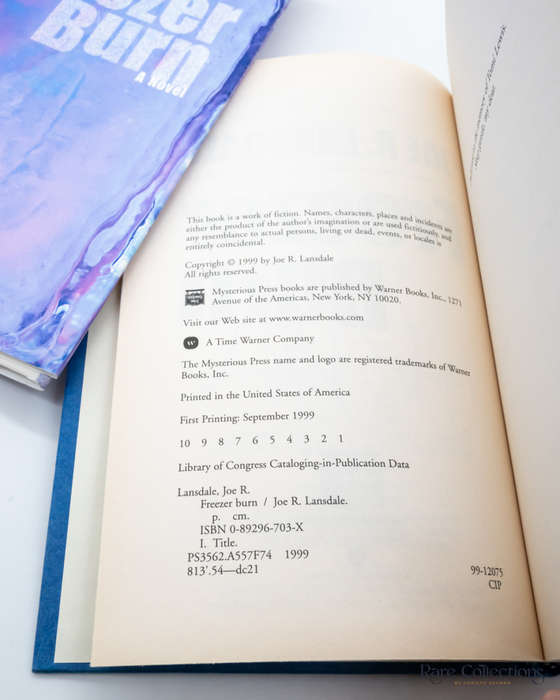 Burn
A Novel
This book is a work of fiction. Names, characters, places and incidents are
either the product of the author's imagination or are used fictitiously, and
any resemblance to actual persons, living or dead, events, or locales is
entirely coincidental.
Copyright © 1999 by Joe R. Lansdale
All rights reserved.
Mysterious Press books are published by Warner Books, Inc., 1271
Avenue of the Americas, New York, NY 10020.
Visit our Web site at www.warnerbooks.com
W A Time Warner Company
The Mysterious Press name and logo are registered trademarks of Warner
Books, Inc.
Printed in the United States of America
First Printing: September 1999
10 9 8 7 6 5 4 3 2 1
Library of Congress Cataloging-in-Publication Data
Lansdale, Joe R.
Freezer burn / Joe R. Lansdale.
p. cm.
ISBN 0-89296-703-X
I. Title.
PS3562.A557F74 1999
813'.54—dc21
99-12075
CIP
memory of
Rare Collections